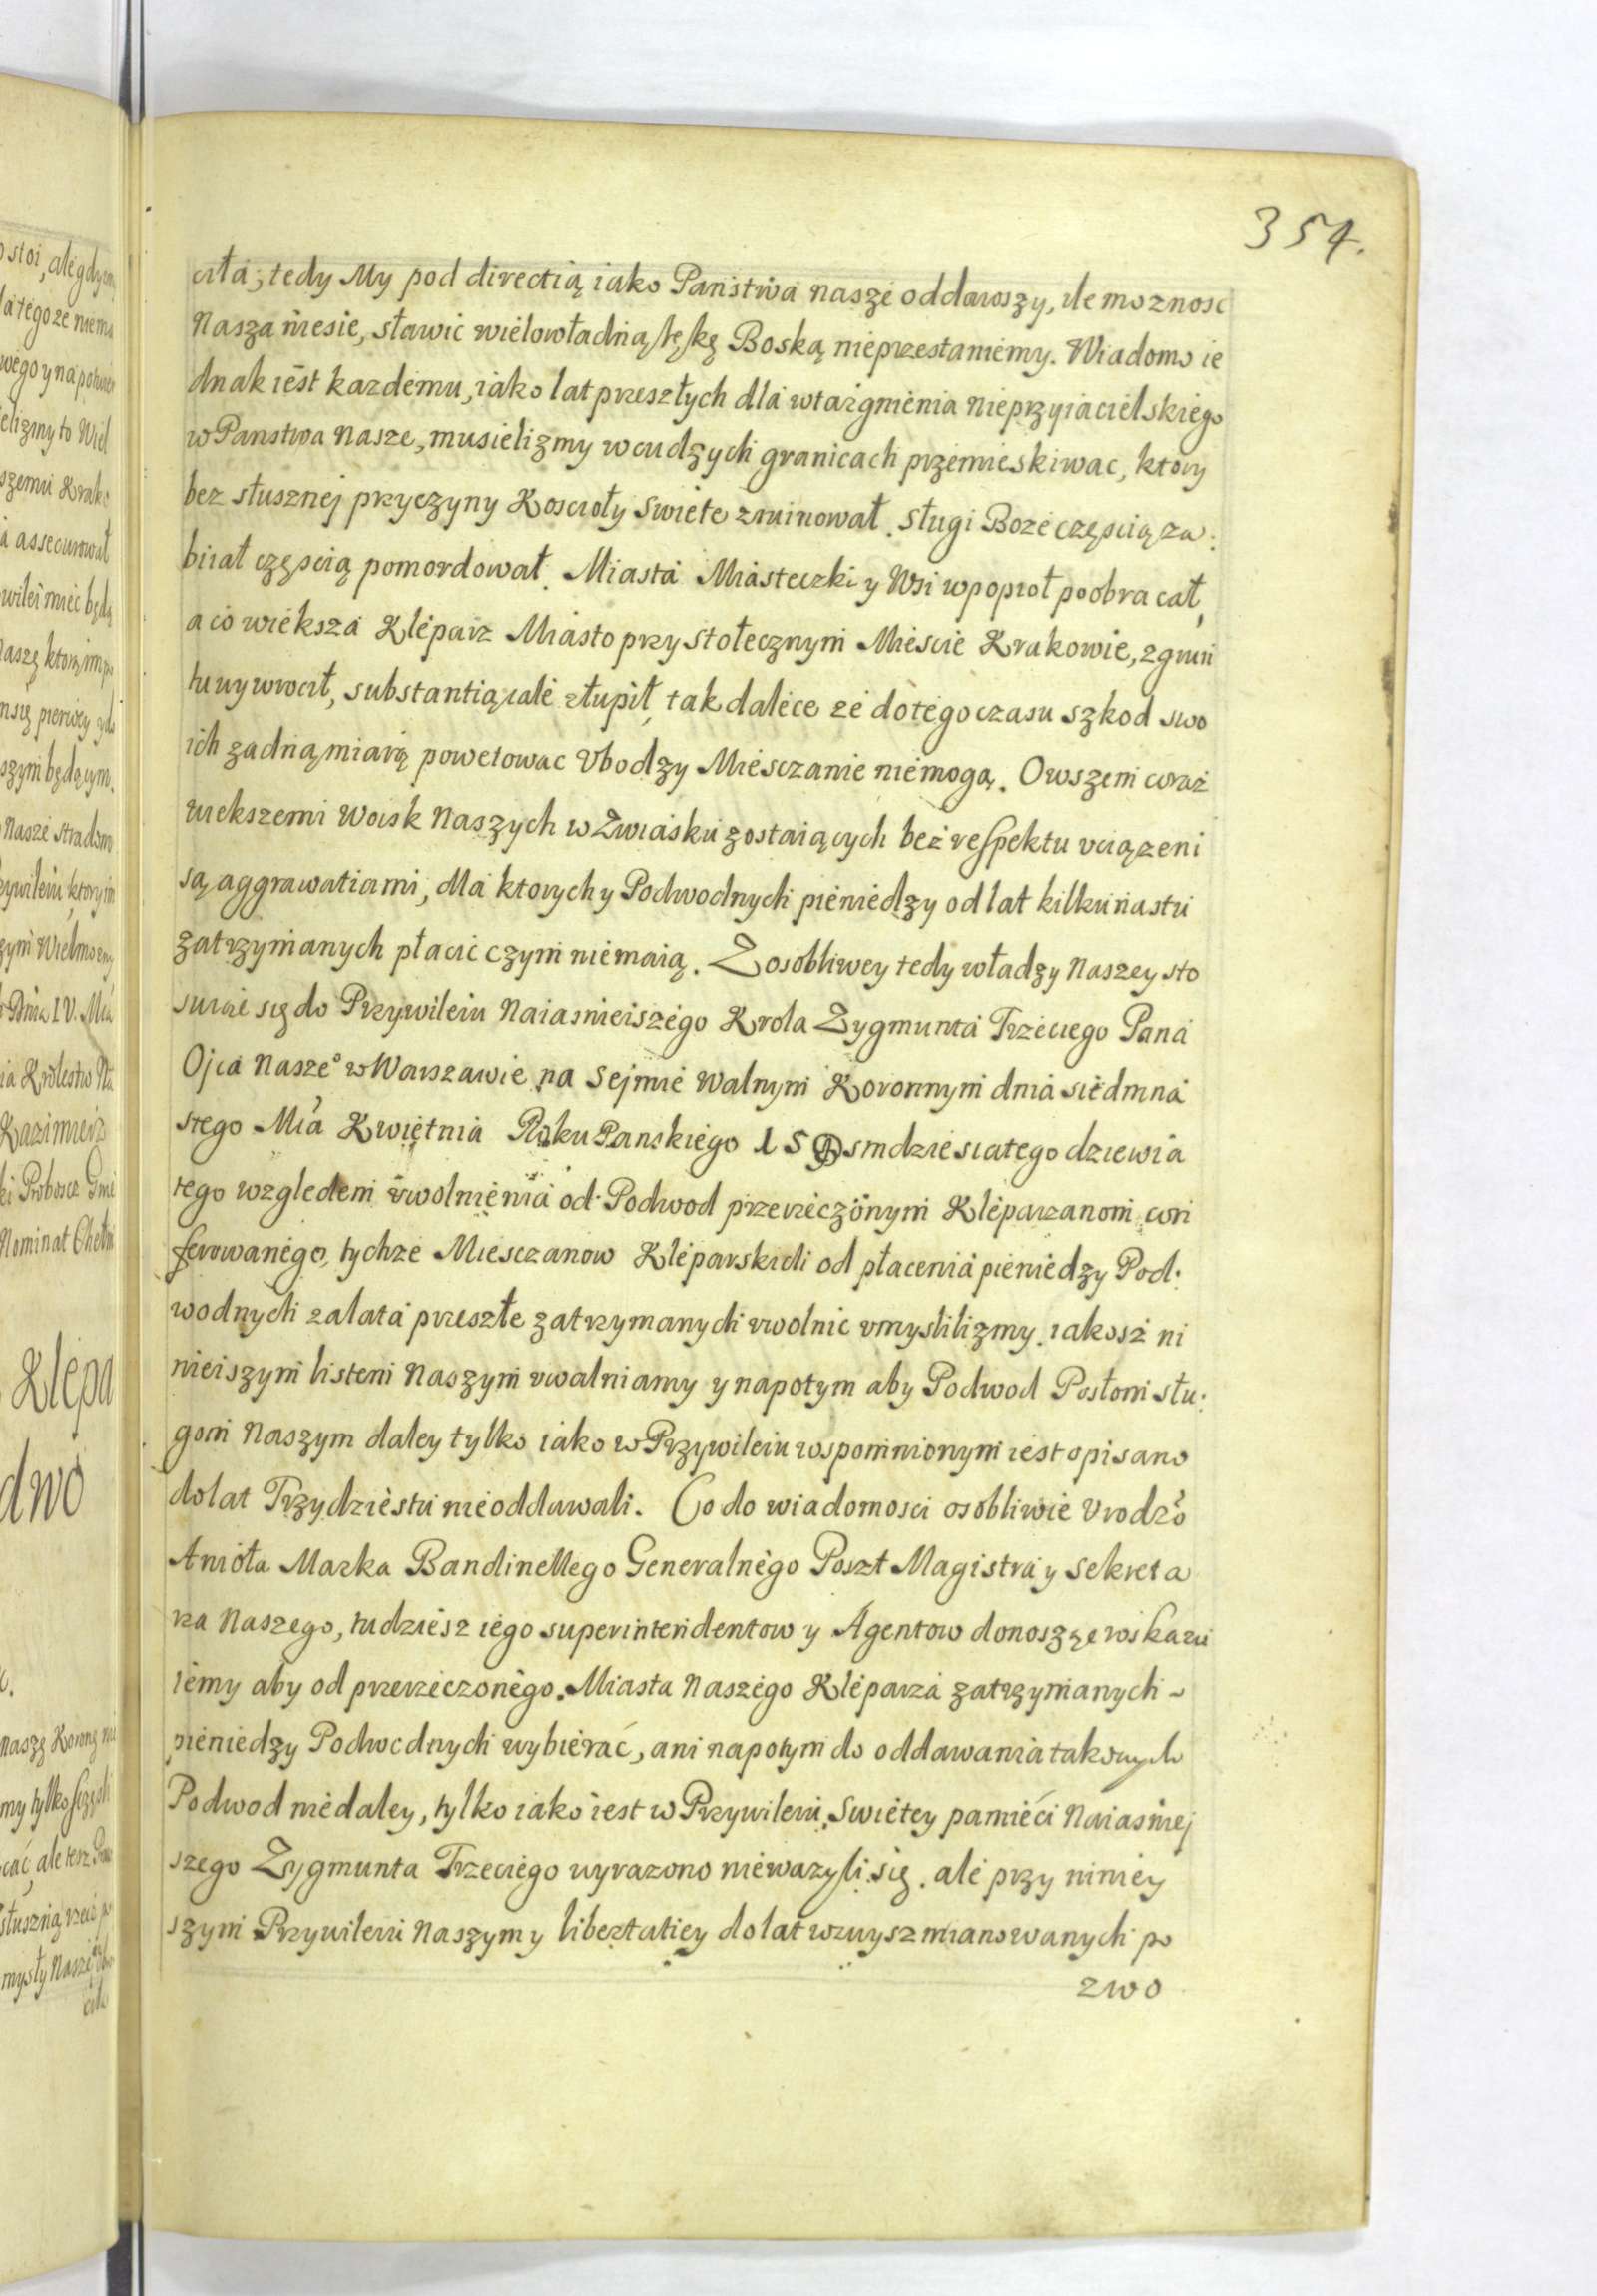 354.
ciła, tedy My pod directią iako Panstwa nasze oddawszy, ile moznosc
Nasza niesie, sławic wielowładną rękę Boską nieprzestaniemy. Wiadomo ie
dnak iest kazdemu, iako lat przeszłych dla wtargnienia nieprzyiacielskiego
w Panstwa nasze, musielizmy w cudzych granicach przemieskiwac, ktory
bez słusznej przyczyny Koscioły Swiete zruinował. Sługi Boze częscią za
birał częscią pomordował. Miasta Miasteczki y Wsi w popioł poobracał,
a co wieksza Kleparz Miasto przy stołecznym Miescie Krakowie, z grun
tu wywrocił, substantią cale złupił, tak dalece ze do tego czasu szkod swo
ich zadną miarą powetowac Vbodzy Miesczanie niemogą. Owszem coraz
wiekszemi Woisk Naszych w Zwiasku zostaiących bez respektu vciązeni
są aggrawatiami, dla ktorych y Podwodnych pieniedzy od lat kilkunastu
zatrzymanych płacic czym niemaią. Z osobliwey tedy władzy Naszey sto
suiąc się do Przywileiu Naiasnieiszego Krola Zygmunta Trzeciego Pana
Ojca Nasze° w Warszawie na Sejmie Walnym Koronnym dnia siedmna
stego Mca Kwiętnia Roku Panskiego 15 Osmdziesiatego dziewia
tego wzgledem vwolnienia od Podwod przerzeczonym Kleparzanom con
ferowanego, tychze Miesczanow Kleparskich od płacenia pieniedzy Pod
wodnych za lata przeszłe zatrzymanych vwolnic vmyslilizmy. iakosz ni
nieiszym listem Naszym vwalniamy y napotym aby Podwod Posłom słu
gom Naszym daley tylko iako w Przywileiu wspomnionym iest opisano
do lat Trzydziestu nieoddawali. Co do wiadomosci osobliwie Vrodz°
Anioła Marka Bandinellego Generalnego Poszt Magistra y Sekreta
rza Naszego, tudziesz iego superintendentow y Agentow donoszęc roskazu
iemy aby od przerzeczonego Miasta Naszego Kleparza zatrzymanych
pieniedzy Podwodnych wybierać, ani napotym do oddawania takowych
Podwod niedaley, tylko iako iest w Przywileiu Swietey pamieći Naiasniej
szego Zygmunta Trzeciego wyrazono niewazyli się. ale przy niniey
szym Przywileiu Naszym y libertatiey do lat wzwysz mianowanych po
zwo